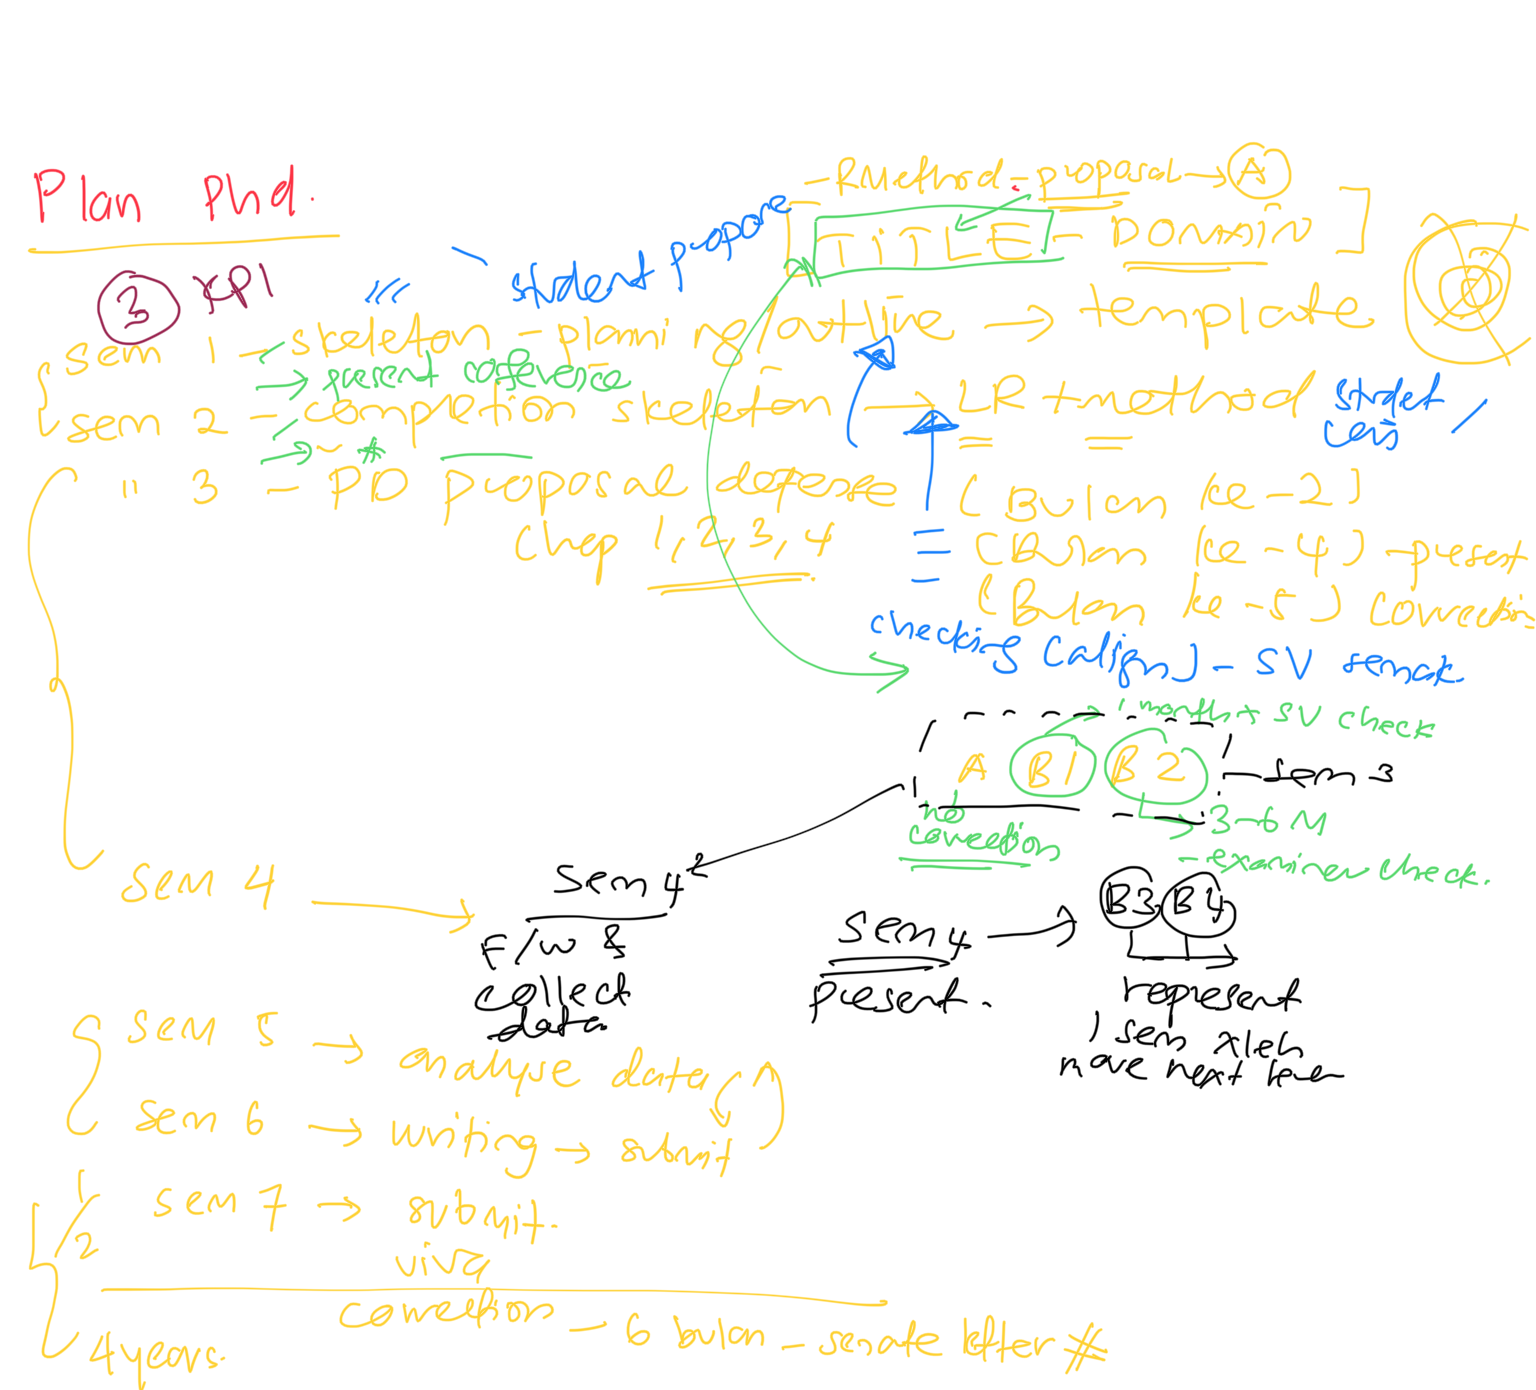 Plan Phd.
- RMethod - proposal → A
TiTLE - DOMAIN
student propose
3 KPI
sem 1 - skeleton - planning/outline → template
→ present conference
sem 2 - completion skeleton → LR + method
→ ~ *
" 3 - PD proposal defense
Chap 1, 2, 3, 4
(Bulan ke - 2)
(Bulan ke - 4) - present
(Bulan ke - 5) correction
checking (align) - SV semak.
1 month + SV check
A B1 B2 - sem 3
no correction
→ 3-6 M
- examiner check.
sem 4 →
Sem 4
F/w &
collect
data.
sem 4 → B3 B4
present.
represent
1 sem xleh
move next level
sem 5 → analyse data
sem 6 → writing → submit
1/2 sem 7 → submit.
viva
correction - 6 bulan - senate letter #
4 years.